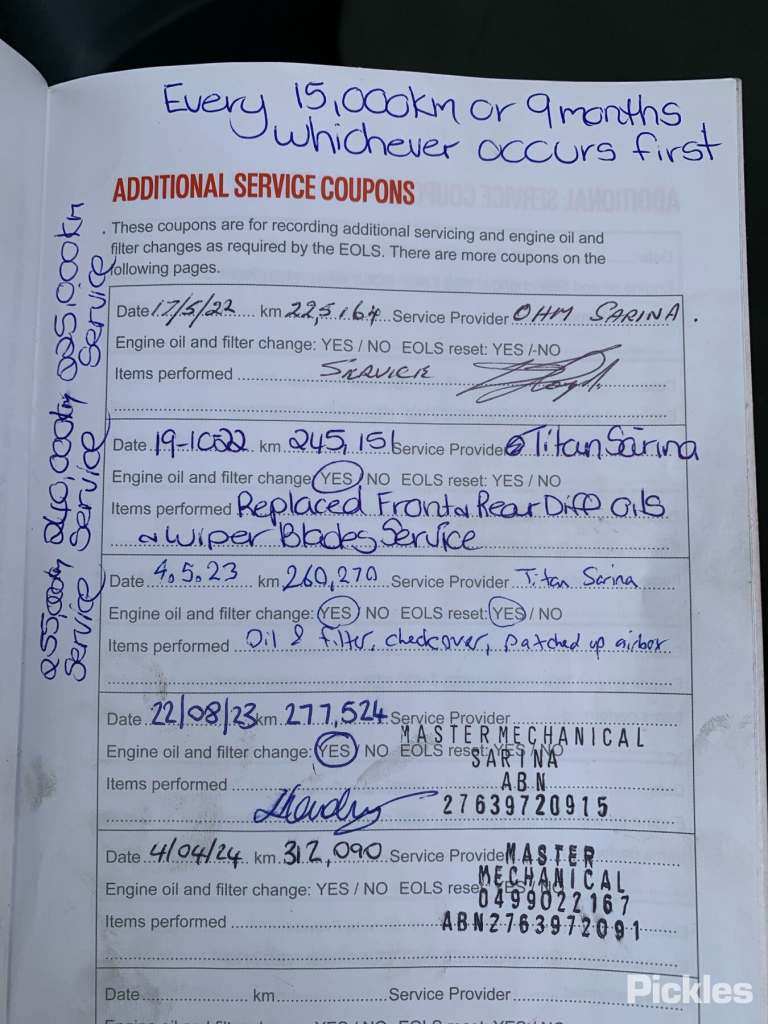 Every 15,000km or 9months
whichever occurs first
ADDITIONAL SERVICE COUPONS
These coupons are for recording additional servicing and engine oil and
filter changes as required by the EOLS. There are more coupons on the
following pages.
225,000km
Service
240,000km
Service
255,000km
Service
Date 17/5/22 km 225,164 Service Provider OHM SARINA.
Engine oil and filter change: YES / NO EOLS reset: YES / NO
Items performed SERVICE
Date 19-10-22 km 245,151 Service Provider Titan Sarina
Engine oil and filter change YES / NO EOLS reset: YES / NO
Items performed Replaced Front & Rear Diff oils
& wiper Blades, Service
Date 4.5.23 km 260,270 Service Provider Titan Sarina
Engine oil and filter change: YES / NO EOLS reset: YES / NO
Items performed Oil & filter, checkover, patched up airbox
Date 22/08/23 km 277,524 Service Provider
MASTER MECHANICAL
Engine oil and filter change: YES / NO EOLS reset: YES / NO
SARINA
Items performed ABN
27639720915
Date 4/04/24 km 312,090 Service Provider MASTER
MECHANICAL
Engine oil and filter change: YES / NO EOLS reset: YES / NO
0499022167
Items performed ABN2763972091
Date km Service Provider
Pickles